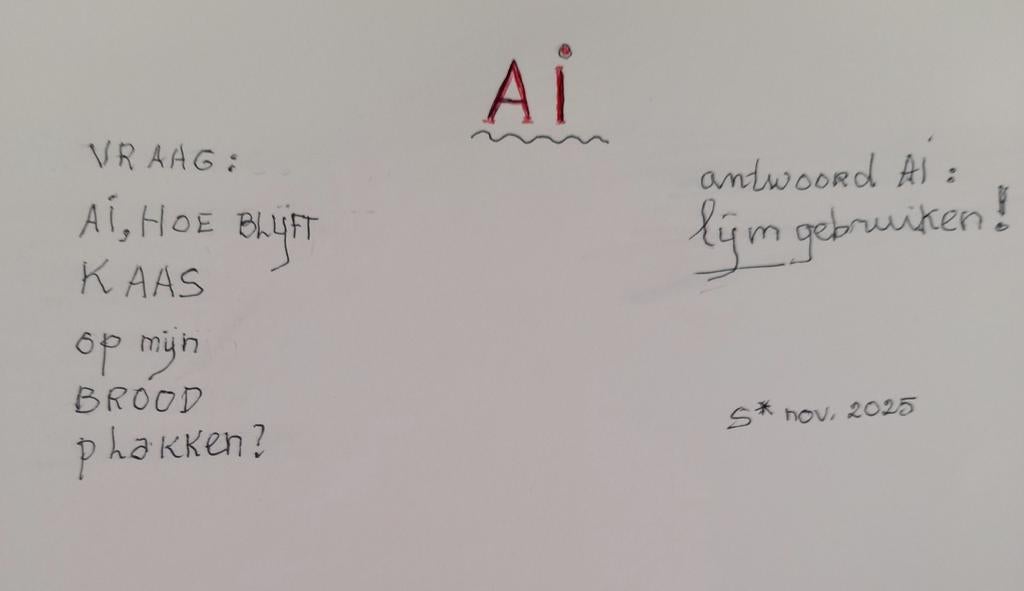 Ai
VRAAG:
Ai, HOE BLIJFT
KAAS
op mijn
BROOD
plakken?
antwoord Ai:
lijm gebruiken!
S* nov. 2025